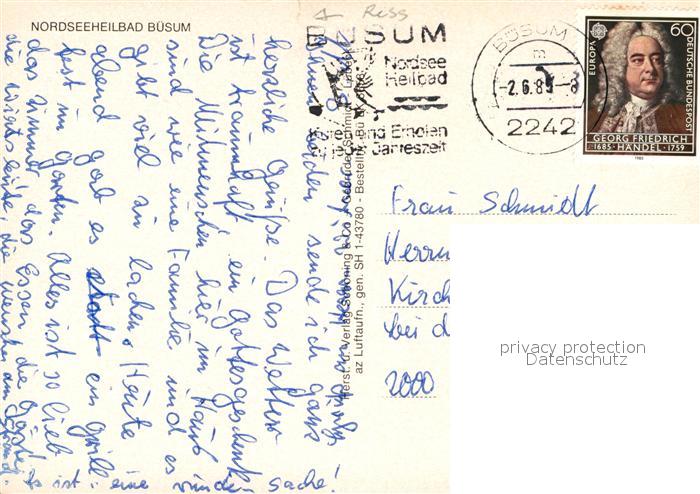 NORDSEEHEILBAD BÜSUM
Ress
BÜSUM
Nordsee
Heilbad
Kuren und Erholen
zu jeder Jahreszeit
BÜSUM
m
-2.6.85-8
2242
EUROPA
60
DEUTSCHE BUNDESPOST
GEORG FRIEDRICH
·1685·HÄNDEL·1759
Herst. u. Verlag Schöning & Co + Gebrüder Schmidt
Bestellnr. Bü
az Luftaufn., gen. SH 1-43780 -
Frau Schmidt
Kirch
bei d
2000
privacy protection
Datenschutz
sende ich ganz
herzliche Grüße. Das Wetter
ist traumhaft ein Gottesgeschenk.
Die Mitmenschen hier im Haus
sind wie eine Familie und es
gibt viel zu lachen. Heute
abend gab es ein Grill-
fest im Garten. Alles ist so lieb
das Zimmer das Essen die Gäste
die Wirtsleute, die
Es ist eine runde Sache!